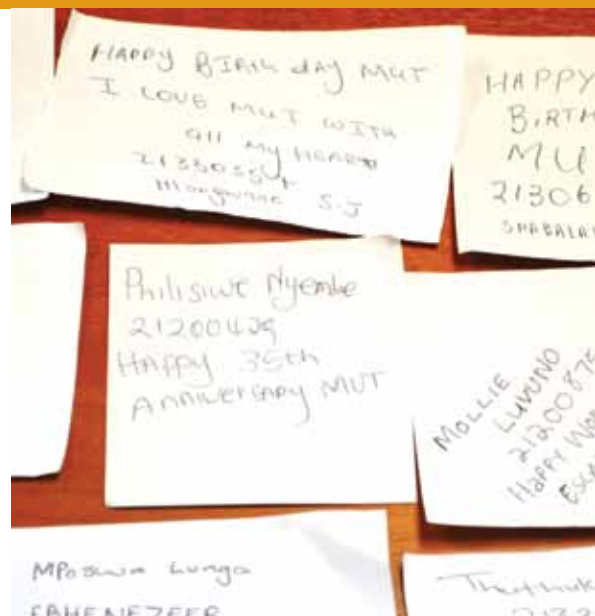 HAPPY BIRth dAY MUT
I LOVE MUT WITH
All MY HEART
S.J
HAPPY
BIRTH
MU
21306
SHABALAL
Philisiwe Nyembe
21200429
HAPPY 35th
ANNIVERSARY MUT
MOLLIE
LUVUNO
2120087
HAPPY
Lunga
EBHENEZEER